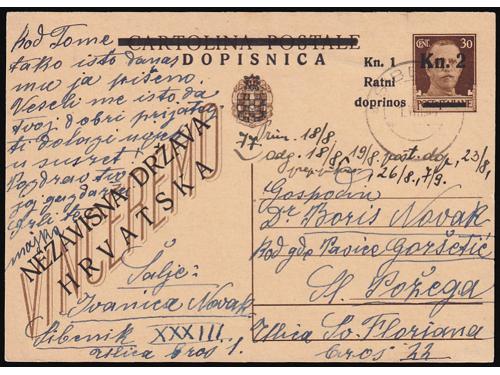 CARTOLINA POSTALE
DOPISNICA
Kn. 1
Ratni
doprinos
CENT. 30
Kn. 2
POSTE ITALIANE
VINCEREMO
NEZAVISNA DRŽAVA
HRVATSKA
kod Tome
tako isto danas
mu ja pišemo.
Veseli me isto da
tvoj dobri prijatelj
ti dolazi
u susret!
Pozdrav
joj gazdarica
majka
77
prim. 18/8.
odg. 18/8, 19/8 post. dop, 23/8,
26/8, 7/9.
Gospodin
Dr Boris Novak
kod gdje Pavice Goršetić
Sl. Požega
Ulica Sv. Florijana
broj 22
Šalje:
Ivanica Novak
Šibenik XXXIII
Ulica broj 1.